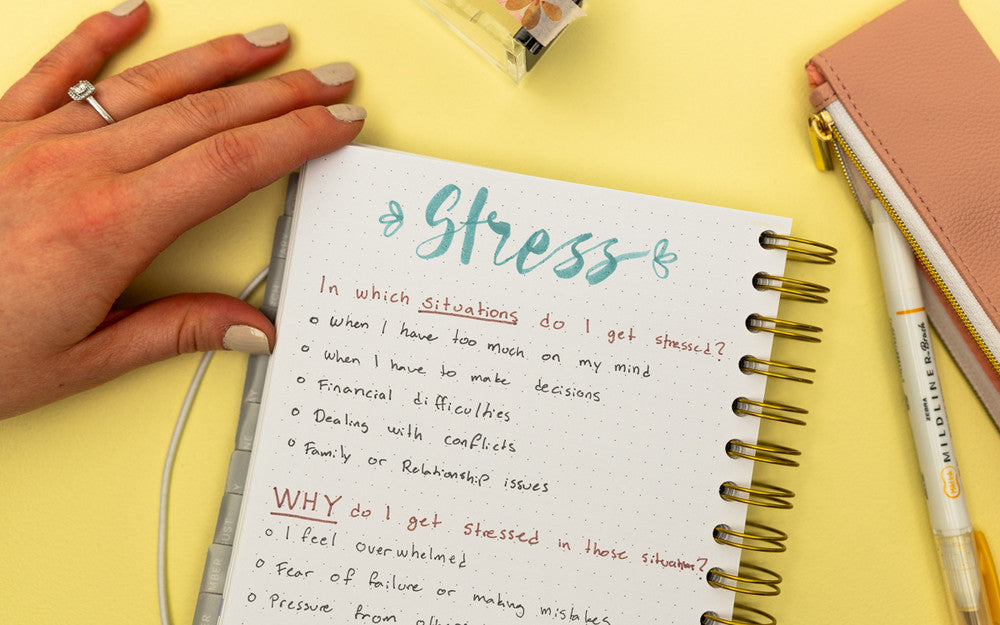 Stress
In which situations do I get stressed?
o When I have too much on my mind
o when I have to make decisions
o Financial difficulties
o Dealing with conflicts
o Family or Relationship issues
WHY do I get stressed in those situation?
o I feel overwhelmed
o Fear of failure or making mistakes
o Pressure from
ZEBRA
MILDLINER Brush
UST
MBER